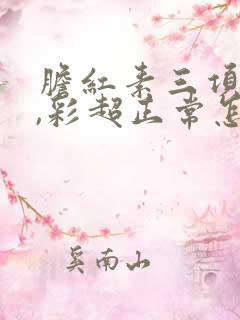 膽紅素三項
,彩超正常怎
奚南山